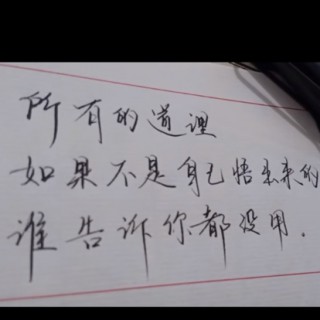 所有的道理
如果不是自己悟出来的
谁告诉你都没用.